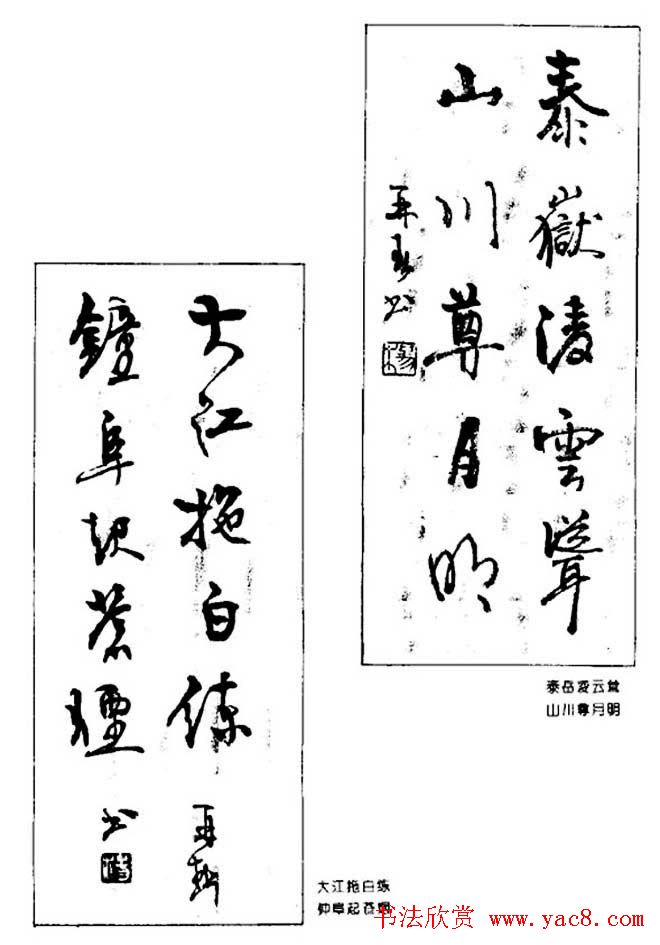 泰嶽凌雲聳
山川尊月明
再书
泰岳凌云耸
山川尊月明
大江拖白练 再
鐘阜起蒼煙 书
大江拖白练
钟阜起苍烟
书法欣赏 www.yac8.com